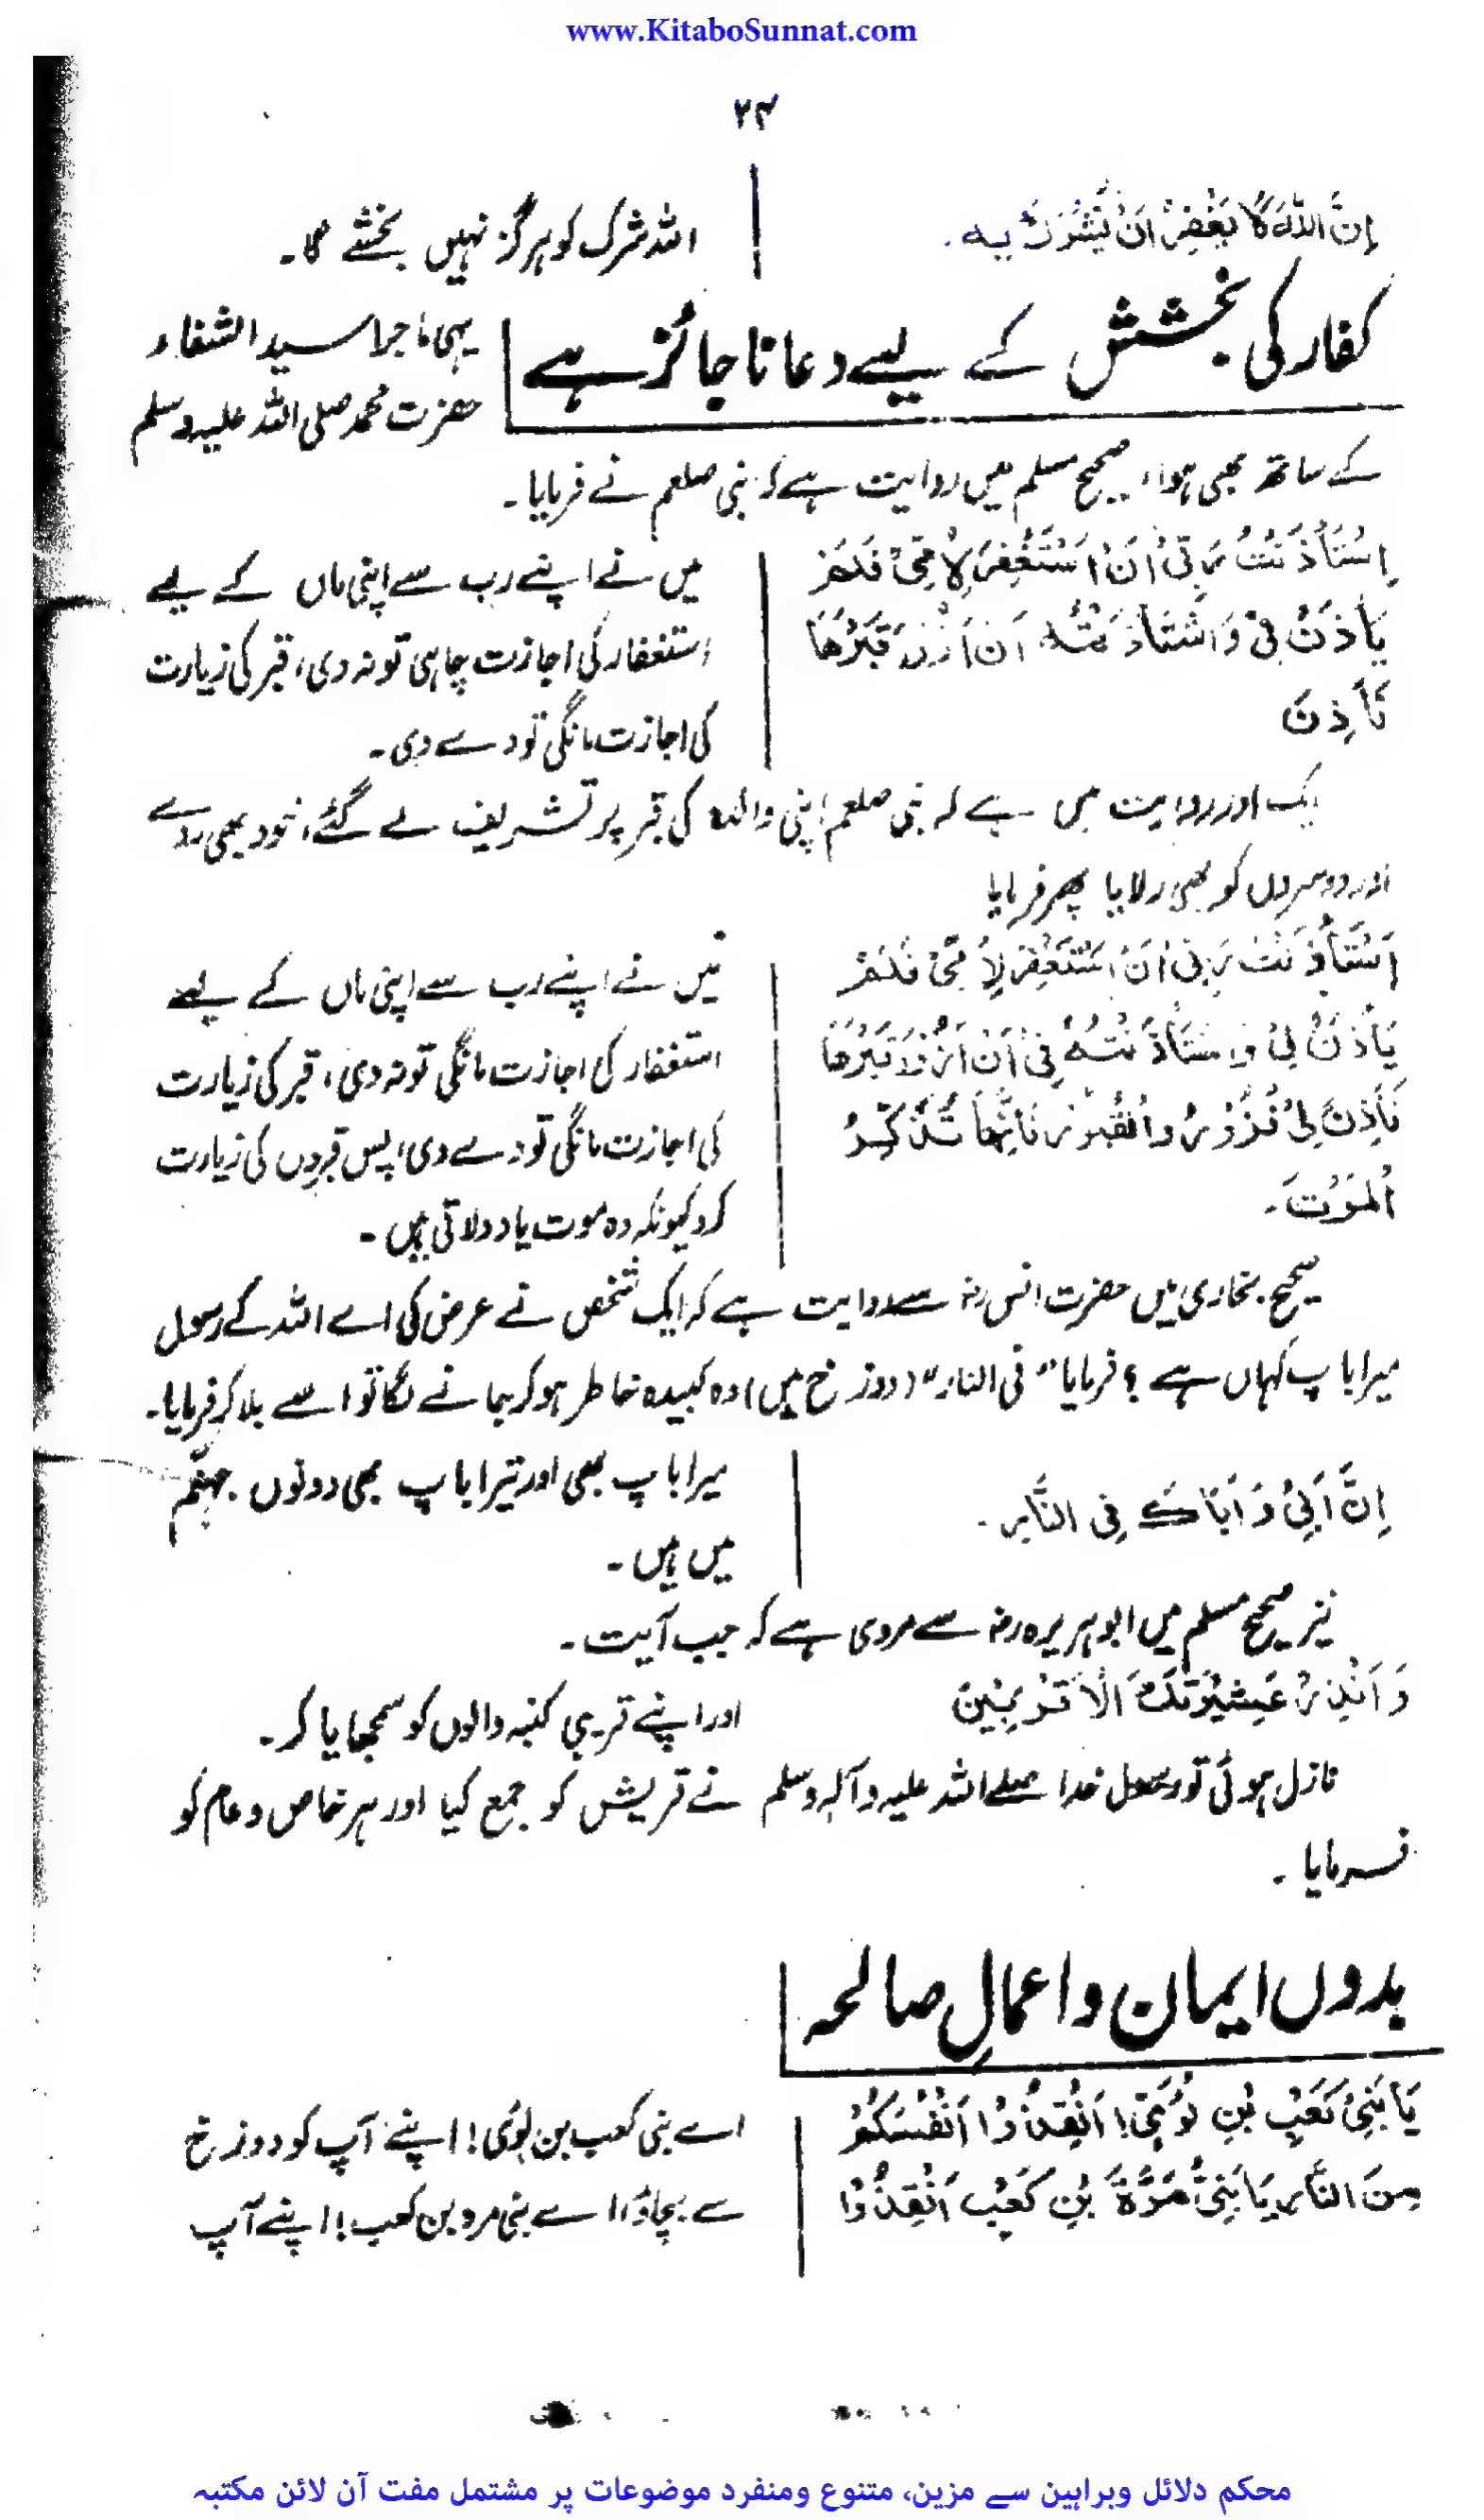 www.KitaboSunnat.com
۲۴
اِنَّ اللہَ لَا یَغْفِرُ اَنْ یُّشْرَكَ بِهٖ۔
اللہ شرک کو ہرگز نہیں بخشے گا۔
کفار کی بخشش کے لیے دعا ناجائز ہے
یہی ماجرا سید الشفاء
حضرت محمد صلی اللہ علیہ وسلم
کے ساتھ بھی ہوا، صحیح مسلم میں روایت ہے کہ نبی صلعم نے فرمایا۔
اِسْتَأْذَنْتُ رَبِّیْ اَنْ اَسْتَغْفِرَ لِاُمِّیْ فَلَمْ
یَأْذَنْ لِیْ وَاسْتَأْذَنْتُهٗ اَنْ اَزُوْرَ قَبْرَهَا
فَأَذِنَ
میں نے اپنے رب سے اپنی ماں کے لیے
استغفار کی اجازت چاہی تو نہ دی، قبر کی زیارت
کی اجازت مانگی تو دے دی۔
یک اور روایت میں ہے کہ نبی صلعم اپنی والدہ کی قبر پر تشریف لے گئے، خود بھی روئے
اور دوسروں کو بھی رلایا پھر فرمایا
اِسْتَأْذَنْتُ رَبِّیْ اَنْ اَسْتَغْفِرَ لِاُمِّیْ فَلَمْ
یَأْذَنْ لِیْ وَاسْتَأْذَنْتُهٗ فِیْ اَنْ اَزُوْرَ قَبْرَهَا
فَأَذِنَ لِیْ فَزُوْرُوا الْقُبُوْرَ فَاِنَّهَا تُذَكِّرُ
الْمَوْتَ۔
میں نے اپنے رب سے اپنی ماں کے لیے
استغفار کی اجازت مانگی تو نہ دی، قبر کی زیارت
کی اجازت مانگی تو دے دی، پس قبروں کی زیارت
کرو کیونکہ وہ موت یاد دلاتی ہیں۔
صحیح بخاری میں حضرت انس رضہ سے روایت ہے کہ ایک شخص نے عرض کی اے اللہ کے رسول
میرا باپ کہاں ہے؟ فرمایا "فی النار" (دوزخ میں) وہ کبیدہ خاطر ہوکر جانے لگا تو اسے بلا کر فرمایا۔
اِنَّ اَبِیْ وَ اَبَاكَ فِی النَّارِ۔
میرا باپ بھی اور تیرا باپ بھی دونوں جہنّم
میں ہیں۔
نیز صحیح مسلم میں ابوہریرہ رضہ سے مروی ہے کہ جب آیت۔
وَ اَنْذِرْ عَشِیْرَتَكَ الْاَقْرَبِیْنَ
اور اپنے قریبی کنبہ والوں کو سمجھایا کر۔
نازل ہوئی تو رسول خدا صلے اللہ علیہ وآلہ وسلم نے قریش کو جمع کیا اور ہر خاص و عام کو
فرمایا۔
بدوں ایمان و اعمالِ صالحہ
یَا بَنِیْ كَعْبِ بْنِ لُؤَیٍّ! اَنْقِذُوْا اَنْفُسَكُمْ
مِنَ النَّارِ یَا بَنِیْ مُرَّةَ بْنِ كَعْبٍ اَنْقِذُوْا
اے بنی کعب بن لوئی! اپنے آپ کو دوزخ
سے بچاؤ! اے بنی مرہ بن کعب! اپنے آپ
محکم دلائل وبراہین سے مزین، متنوع ومنفرد موضوعات پر مشتمل مفت آن لائن مکتبہ